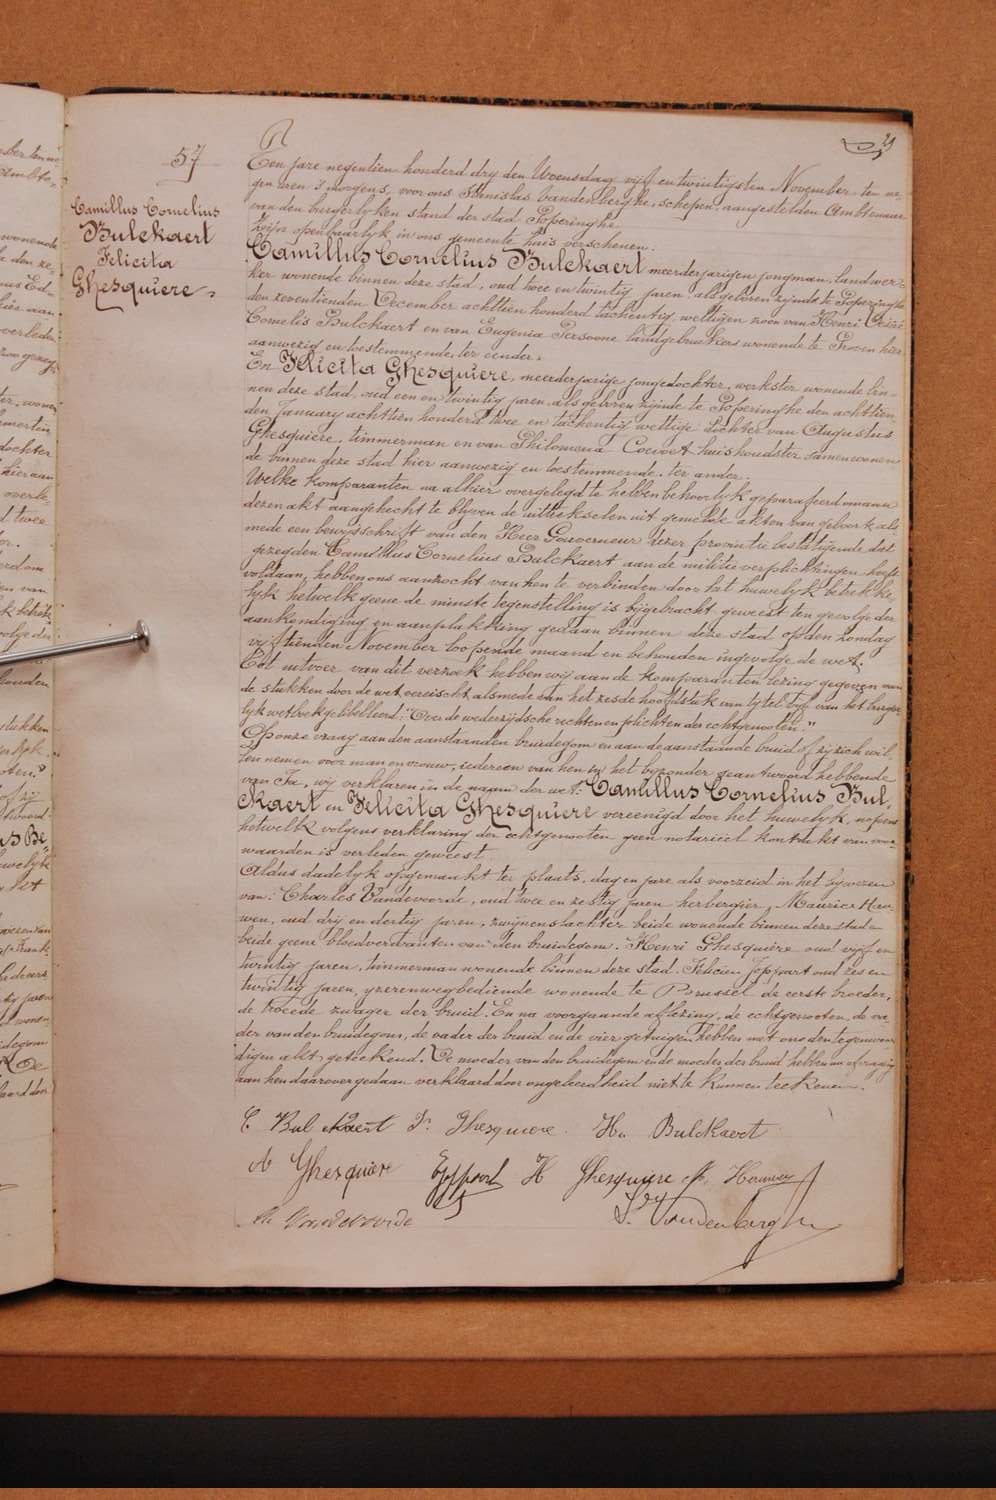 29
57
Camillus Cornelius
Bulckaert
Felicita
Ghesquiere
Een jare negentien honderd dry den Woensdag vijf en twintigsten November, ten ne-
gen uren 's morgens, voor ons Stanislas Vandenberghe, schepen, aangestelden Ambtenaar
van den burgerlyken stand der stad Poperinghe
Zijn openbaarlyk in ons gemeente huis verschenen:
Camillus Cornelius Bulckaert meerderjarigen jongman, landwer-
ker wonende binnen deze stad, oud twee en twintig jaren, als geboren zynde te Poperinghe
den zeventienden December achttien honderd tachentig, wettigen zoon van Henri
Cornelis Bulckaert en van Eugenia Persoone landgebruikers wonende te Proven hier
aanwezig en toestemmende, ter eender.
En Felicita Ghesquiere, meerderjarige jongedochter, werkster wonende bin-
nen deze stad, oud een en twintig jaren als geboren zijnde te Poperinghe den achttien
den January achttien honderd twee en tachentig, wettige dochter van Augustus
Ghesquiere, timmerman en van Philomena Couvet huishoudster samen wonen
de binnen deze stad hier aanwezig en toestemmende, ter ander.
Welke komparanten na alhier overgelegd te hebben behoorlyk geparafeerd omaan
dezen akt aangehecht te blyven de uittrekselen uit gemelde akten van geboorte als
mede een bewysschrift van den Heer Gouverneur dezer provintie bestatigende dat
gezegden Camillus Cornelius Bulckaert aan de militie verplichtingen heeft
voldaan, hebben ons aanzocht van hen te verbinden door het huwelyk betrekke
lyk hetwelk geene de minste tegenstelling is bygebracht geweest ten gevolge der
aankondiging en aanplakking gedaan binnen deze stad op den zondag
vijftienden November loopende maand en behouden ingevolge de wet.
Tot uitvoer van dit verzoek hebben wij aan de komparanten lezing gegeven van
de stukken door de wet vereischt, alsmede van het zesde hoofdstuk van tytel vyf van het burger-
lyk wetboek getitelleerd: "Over de wederzijdsche rechten en plichten der echtgenooten."
Op onze vraag aan den aanstaanden bruidegom en aan de aanstaande bruid of zij zich wil
len nemen voor man en vrouw, iedereen van hen in het byzonder geantwoord hebbende
van Ja, wij verklaren in de naam der wet: Camillus Cornelius Bul-
kaert en Felicita Ghesquiere vereenigd door het huwelyk, nopens
hetwelk volgens verklaring der echtgenooten geen notarieel kontrakt van voor
waarden is verleden geweest.
Aldus dadelyk opgemaakt ter plaats, dag en jare als voorzeid in het bywezen
van: Charles Vandevoorde, oud twee en zestig jaren herbergier, Maurice Hau-
wen, oud drij en dertig jaren, zwijnenslachter beide wonende binnen deze stad
beide geene bloedverwanten van den bruidegom. Henri Ghesquiere oud vyf en
twintig jaren, timmerman wonende binnen deze stad. Felicien Joppart oud zes en
twintig jaren, yzerenwegbediende wonende te Brussel de eerste broeder,
de tweede zwager der bruid. En na voorgaande aflezing, de echtgenooten, de va-
der van den bruidegom, de vader der bruid en de vier getuigen hebben met ons den tegenwoor
digen akt geteekend. De moeder van den bruidegom en de moeder der bruid hebben na afvraging
aan hen daarover gedaan verklaard door ongeleerdheid niet te kunnen teekenen.
C Bulckaert F. Ghesquiere H. Bulckaert
A Ghesquiere Joppart H Ghesquiere M. Hauwen
Ch Vandevoorde S. Vandenberghe